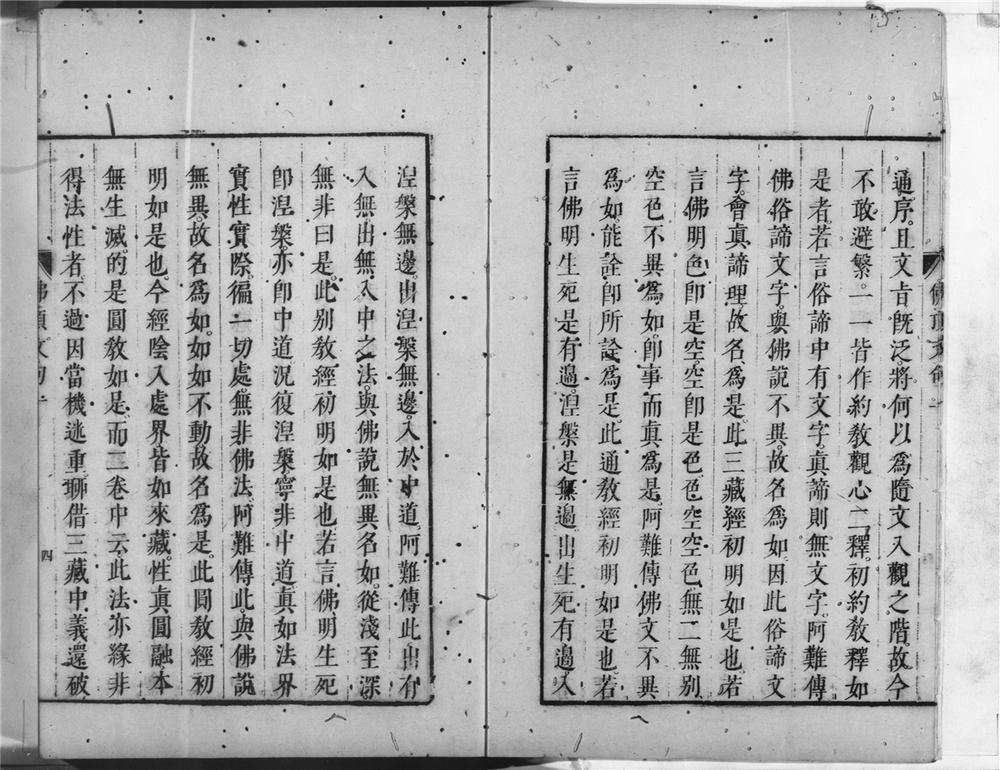 通序。且文㫖旣泛。將何以爲隨文入觀之階。故今
不敢避繁。一一皆作約敎觀心二釋初約敎釋如
是者。若言俗諦中有文字。眞諦則無文字。阿難傳
佛俗諦文字。與佛說不異。故名爲如。因此俗諦文
字。會眞諦理。故名爲是。此三藏經初明如是也。若
言佛明色卽是空。空卽是色。色空空色。無二無別
空色不異爲如。卽事而眞爲是。阿難傳佛文不異
爲如。能詮卽所詮爲是。此通敎經初明如是也。若
言佛明生死是有邊。湼槃是無邊。出生死有邊。入
湼槃無邊。出湼槃無邊。入於中道。阿難傳此出有
入無。出無入中之法。與佛說無異名如。從淺至深
無非曰是。此別敎經初明如是也若言佛明生死
卽湼槃。亦卽中道。況復湼槃。寧非中道。眞如法界
實性實際。徧一切處。無非佛法。阿難傳此。與佛說
無異。故名爲如。如如不動。故名爲是。此圓敎經初
明如是也。今經陰入處界皆如來藏。性眞圓融本
無生滅。的是圓敎如是。而二卷中云此法亦緣。非
得法性者。不過因當機迷重。聊借三藏中義還破
佛頂文句一
四